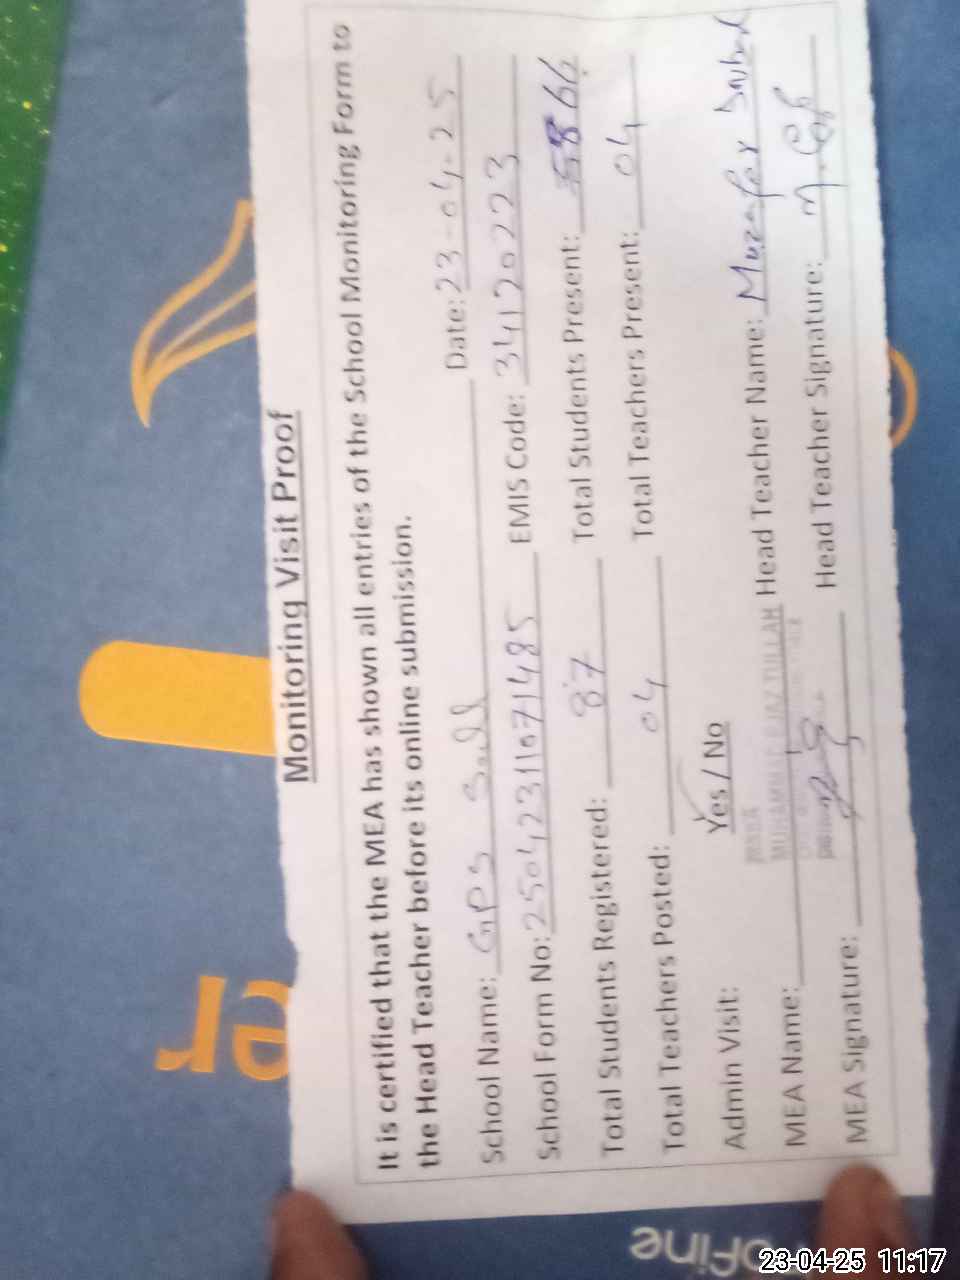 Monitoring Visit Proof
It is certified that the MEA has shown all entries of the School Monitoring Form to
the Head Teacher before its online submission.
School Name: GPS Date: 23-04-25
School Form No: 25042311071485 EMIS Code: 34120223
Total Students Registered: 87 Total Students Present: 66
Total Teachers Posted: 04 Total Teachers Present: 04
Admin Visit: Yes / No
MEA Name: Head Teacher Name: Muzafar
MEA Signature: Head Teacher Signature:
er
oFine
23-04-25 11:17